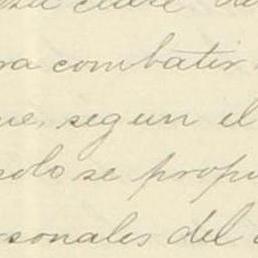 clase
ra combatir
ue, segun el
solo se propu
rsonales del